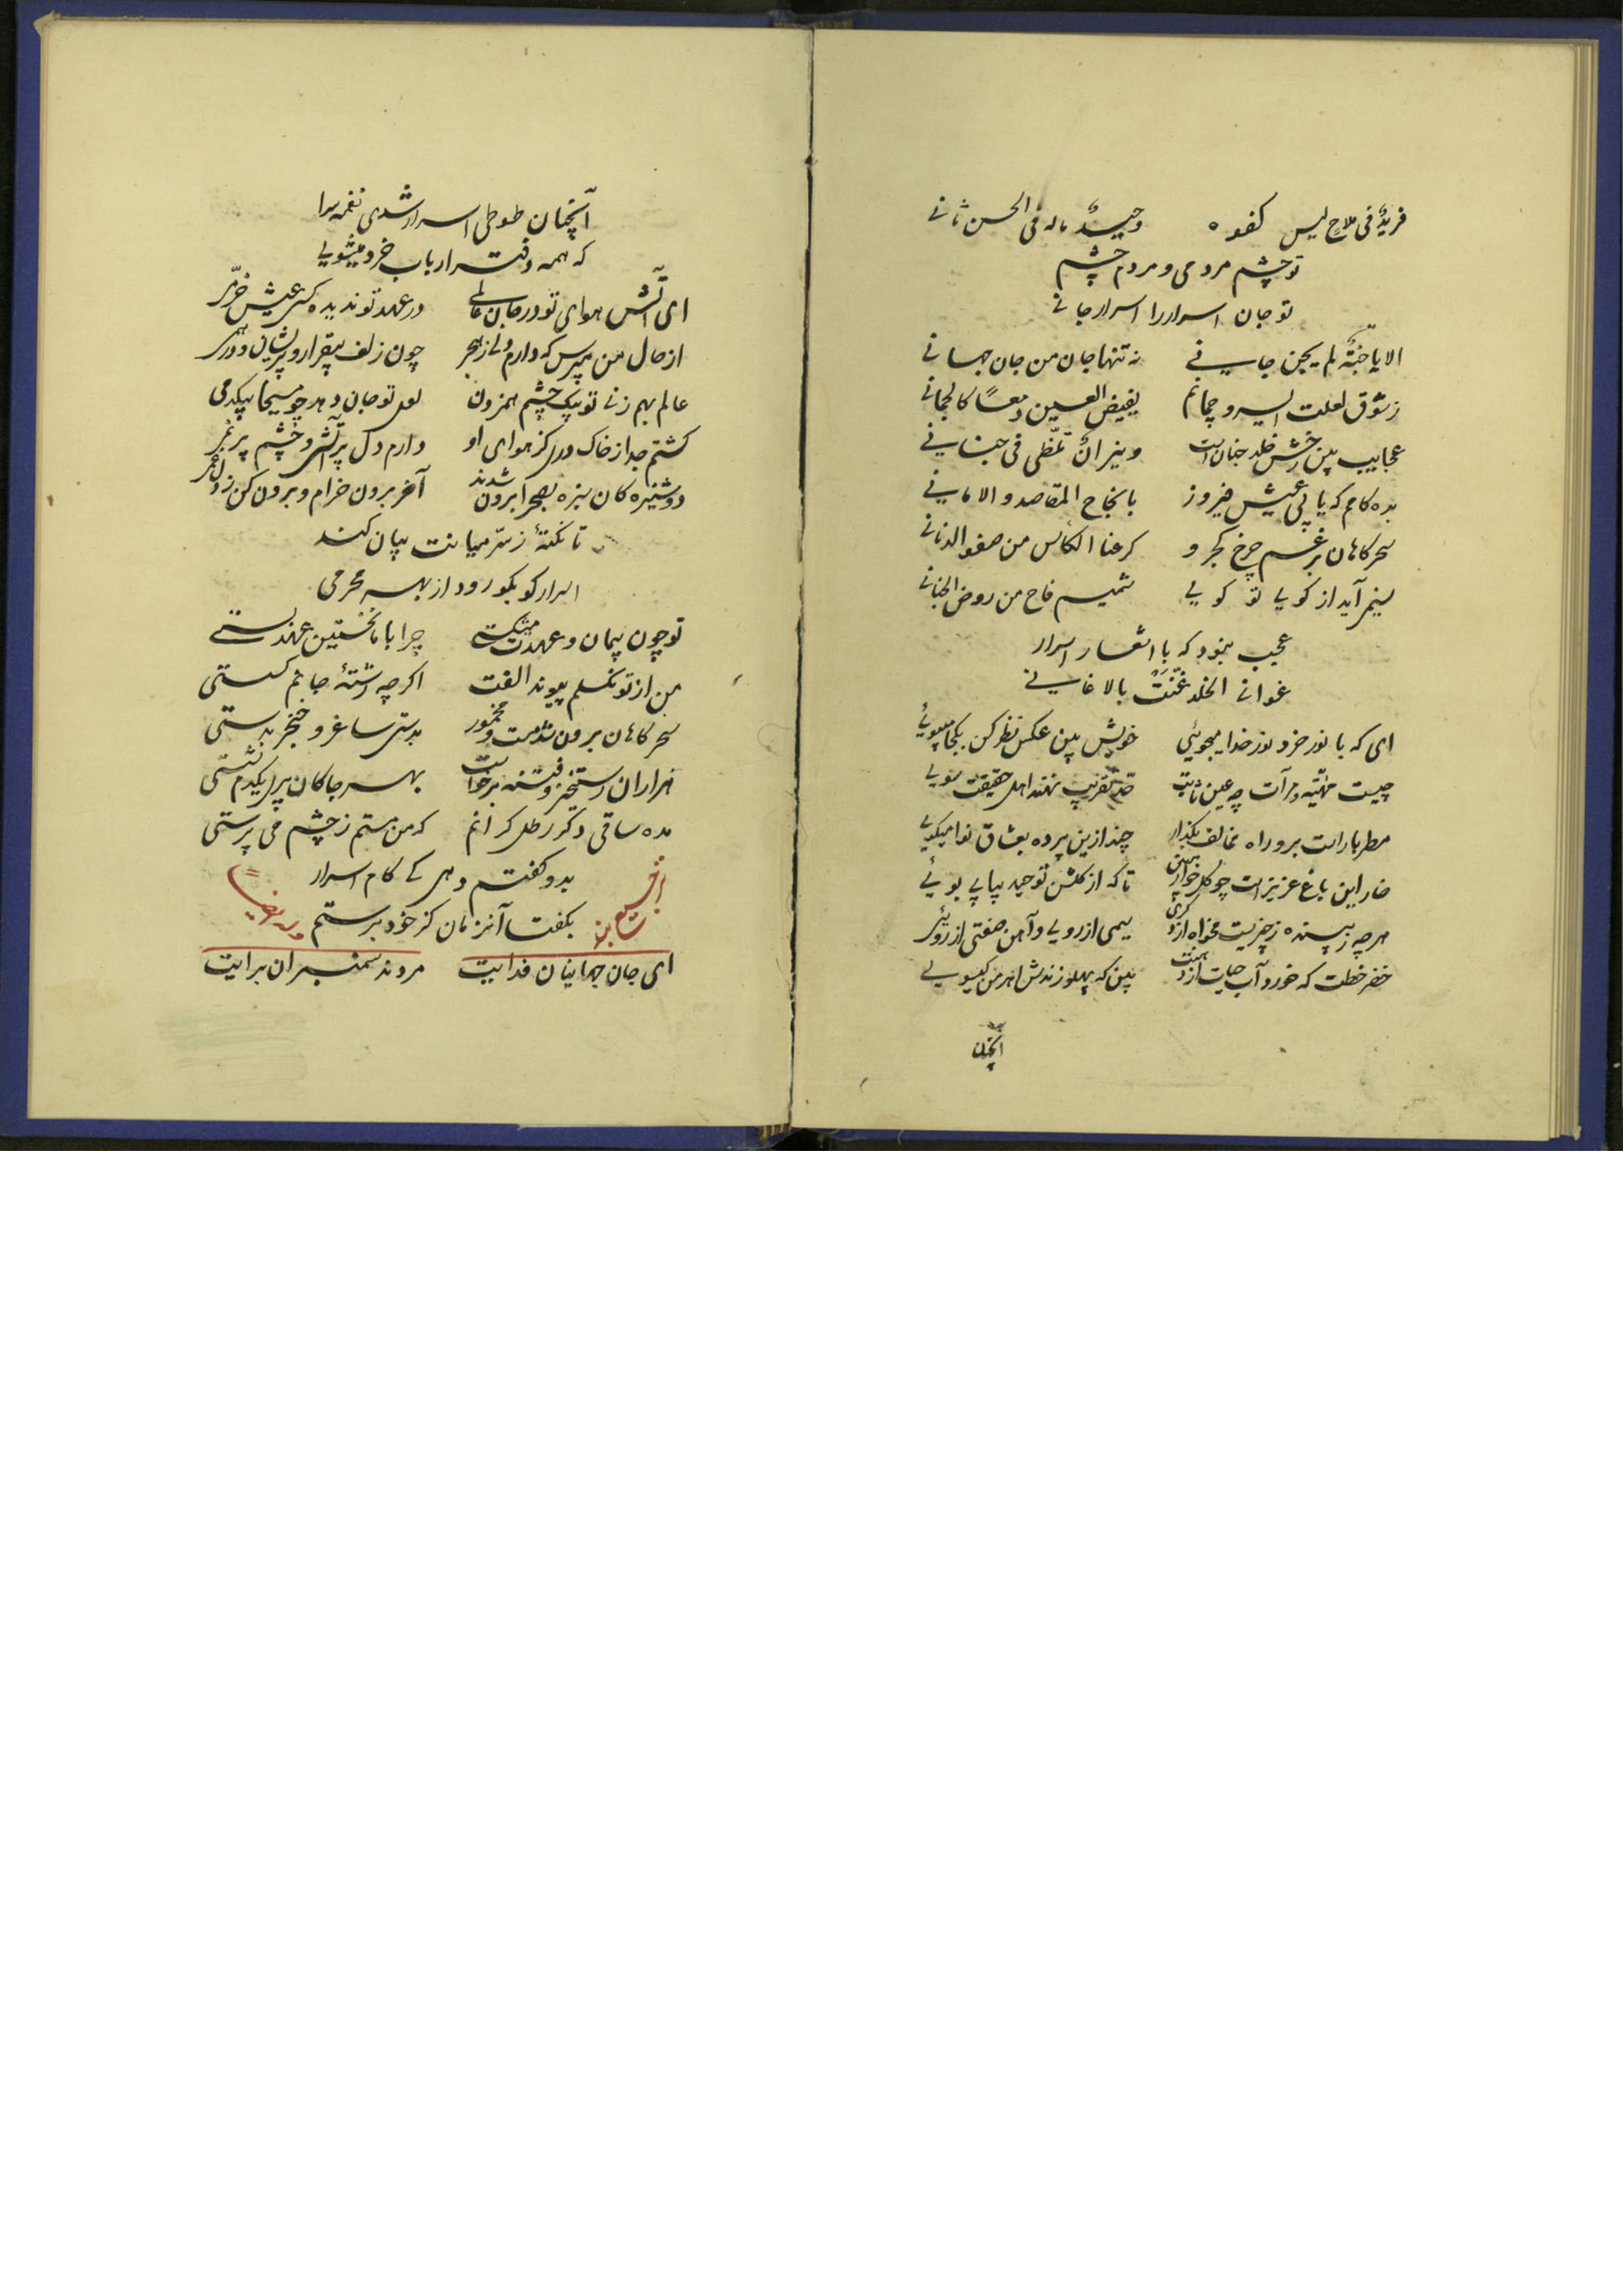 فریدٌ فی ملاح لیس کفوه وحیدٌ ماله فی الحسن ثانی
تو چشم مردمی و مردم چشم
تو جان اسرار را اسرار جانی
الا یا جنّةً لم یجن جانی نه تنها جان من جان جهانی
ز شوق لعلت ای سرو چمانم یفیض العین دمعاً کالجمانی
عجایب بین رخش خلد جنان است و نیرانٌ تلظّی فی جنانی
بده کامم که یابی عیش فیروز بانجاح المقاصد و الامانی
سحرکاهان برغم چرخ کجرو کرعنا الکأس من صفو الدنانی
نسیم آید از کوی تو کویی شمیم فاح من روض الجنانی
عجب نبود که با اشعار اسرار
غوانی الخلد غنّت بالاغانی
ای که با نور خرد نور خدا میجوئی خویش بین عکس نظر کن بکجا میپوئی
چیست مهیّة و مرآت چه عین ثابت حدّ تقریب نهند اهل حقیقت سویی
مطربا راست برو راه مخالف بگذار چند ازین پرده بعشاق نوا میکویی
خار این باغ عزیز است چو کل خوار مبین تا که از کلشن توحید بیابی بوئی
هرچه ز بنده ز چیزیست مخواه از وی سیمی از رویی و آهن صفتی از روئی
خضر خطت که خورد آب حیات از دهنت بین که پهلو زندش اهرمن کیسویی
آنچنان
آنچنان طوطی اسرار شدی نغمه سرا
که همه دفتر ارباب خرد میشویی
ای آتش هوای تو در جان عالمی در عهد تو ندیده کسی عیش خرّمی
از حال من مپرس که دارم دلی ز هجر چون زلف بیقرار و پریشان و درهمی
عالم بهم زنی تو بیک چشم همزدن لعل تو جان دهد چو مسیحا بیکدمی
کشتم جدا ز خاک درل کز هوای او دارم دل پر آتش و چشم پر نمی
دوشیزه کان سبزه بصحرا برون شدند آخر برون خرام و برون کن ز دل غمی
تا نکتهٔ ز سرّ میانت بیان کند
اسرار کو بکو رود از بهر محرمی
تو چون پیمان و عهدت میشکستی چرا با ما نخستین عهد بستی
من از تو نکسلم پیوند الفت اکرچه رشتهٔ جانم کسستی
سحرکاهان برون شد مست و مخمور بدستی ساغر و خنجر بدستی
هزاران رستخیز و فتنه برخواست بهر جا کان پری یکدم نشستی
مده ساقی دکر رطل کرانم که من مستم ز چشم می پرستی
بدو کفتم دهی کی کام اسرار
بکفت آنزمان کز خود برستی
ای جان جهانیان فدایت مردند سمنبران برایت